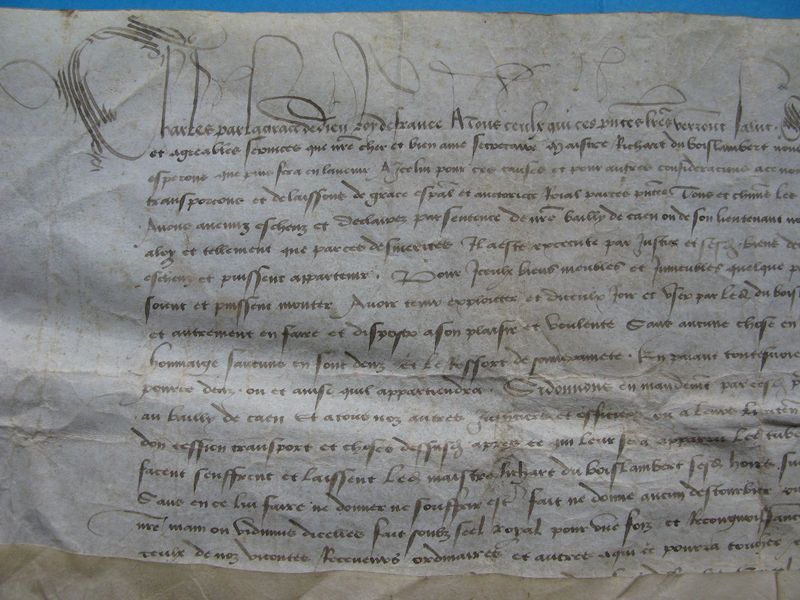 Charles par la grace de dieu Roy de france A tous ceulx qui ces pntes lres verront salut
et agreables services que nre cher et bien ame secretaire Maistre Richart du boislambert nous
esperons que plus face en lavenir A Icelui pour ces causes et pour autres consideracions a ce nous
transportons et delaissons de grace espal et auctorite Roial par ces pntes Tous et chuns les
Avons avenuz escheuz et declairez par sentence de nre bailly de caen ou de son lieutenant
aloy et tellement que par ses desmerites Il a este execute par Justice et sesd biens
escheuz et puissent appartenir Pour Iceulx biens meubles et Inmeubles quelque
soient et puissent monter Avoir tenir exploicter et diceulx Joir et user par led du bois
et autrement en faire et disposer a son plaisir et voulente Sans aucune chose en
hommaige saucuns en sont deuz et le Ressort de souverainete En paiant toutesvoies
pour ce deuz ou et ainsi quil appartiendra Si donnons en mandement par cesd
au bailly de caen Et a tous noz autres Justiciers et officiers ou a leurs lieuten
don cession transport et choses dessusd apres ce qui leur sera apparu led
facent seuffrent et laissent led maistre Richart du boislambert sesd hoirs
Sans en ce lui faire ne donner ne souffrir estre fait ne donne aucun destourbier ou
nre main ou vidimus dicelles fait soubz seel royal pour une foiz et Recongnoissance
ceulx de noz vicontes Receveurs ordinaires et autres a qui ce pourra toucher